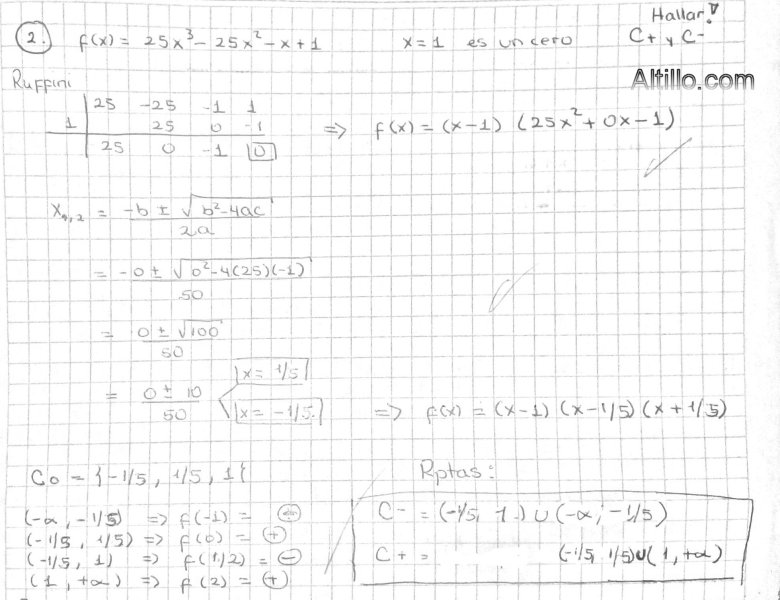 2. f(x) = 25x³ - 25x² - x + 1 x = 1 es un cero Hallar: C+ y C-
Altillo.com
Ruffini
25 -25 -1 1
1 25 0 -1
25 0 -1 0 => f(x) = (x-1) (25x² + 0x - 1)
x₁,₂ = -b ± √b²-4ac / 2a
= -0 ± √0²-4(25)(-1) / 50
= 0 ± √100 / 50
= 0 ± 10 / 50 x = 1/5 x = -1/5 => f(x) = (x-1) (x-1/5) (x+1/5)
C₀ = {-1/5, 1/5, 1{
Rptas:
(-∞, -1/5) => f(-1) = ⊖
(-1/5, 1/5) => f(0) = ⊕
(-1/5, 1) => f(1/2) = ⊖
(1, +∞) => f(2) = ⊕
C- = (-1/5, 1) ∪ (-∞, -1/5)
C+ = (-1/5, 1/5) ∪ (1, +∞)